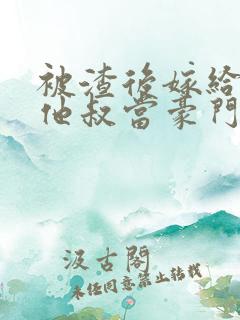 被渣後嫁給
他叔當豪門
汲古閣
未經同意禁止轉載